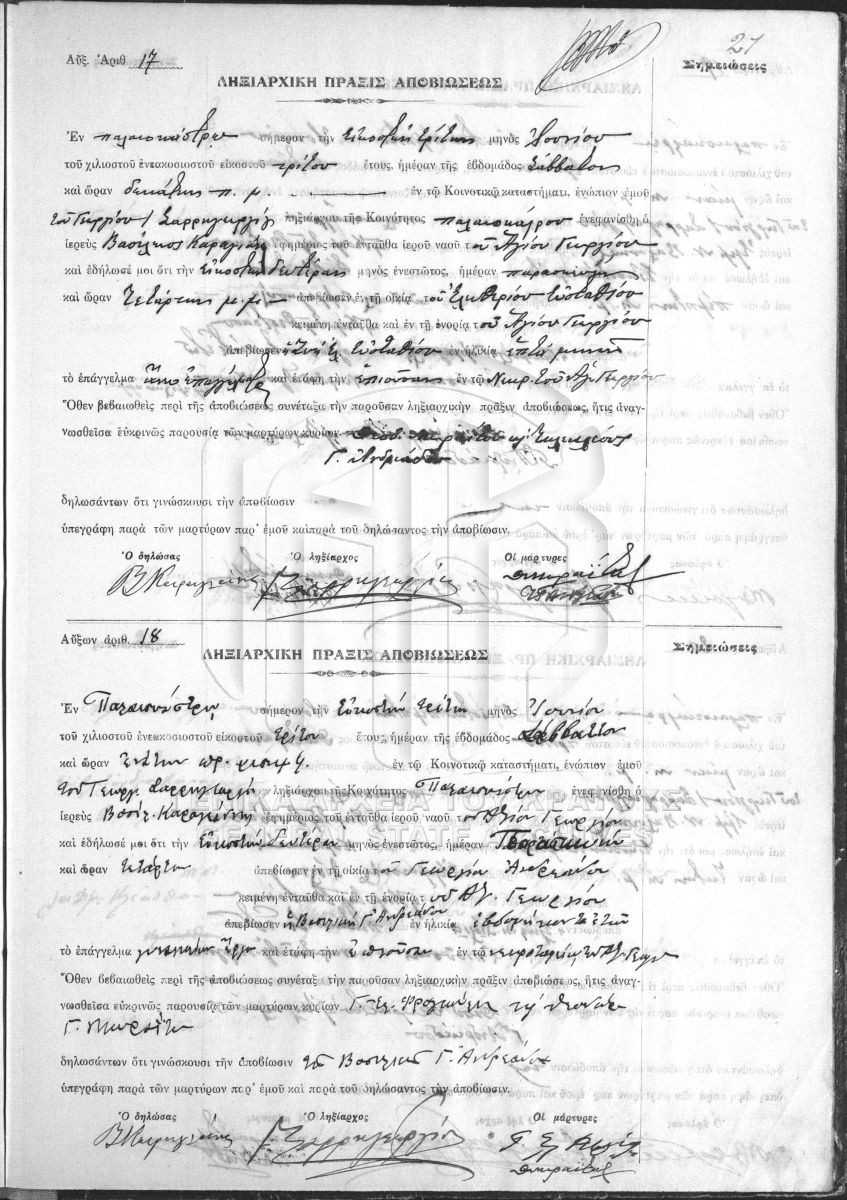 21
Αὔξ. Ἀριθ 17
Σημειώσεις
ΛΗΞΙΑΡΧΙΚΗ ΠΡΑΞΙΣ ΑΠΟΒΙΩΣΕΩΣ
Ἐν παλαιοκάστρῳ σήμερον τὴν Εἰκοστὴν τρίτην μηνὸς Ἰουνίου
τοῦ χιλιοστοῦ ἐνεακοσιοστοῦ εἰκοστοῦ τρίτου ἔτους, ἡμέραν τῆς ἑβδομάδος Σάββατον
καὶ ὥραν δεκάτην π. μ. ἐν τῷ Κοινοτικῷ καταστήματι, ἐνώπιον ἐμοῦ
τοῦ Γεωργίου Σαρρηγεωργίου ληξιάρχου τῆς Κοινότητος παλαιοκάστρου ἐνεφανίσθη ὁ
ἱερεὺς Βασίλειος Καραγιάννης ἐφημέριος τοῦ ἐνταῦθα ἱεροῦ ναοῦ τοῦ Ἁγίου Γεωργίου
καὶ ἐδήλωσέ μοι ὅτι τὴν Εἰκοστὴν Δευτέραν μηνὸς ἐνεστῶτος, ἡμέραν παρασκευὴν
καὶ ὥραν Τετάρτην μ. μ. ἀπεβίωσεν ἐν τῇ οἰκίᾳ τοῦ Ἐλευθερίου Εὐσταθίου
κειμένῃ ἐνταῦθα καὶ ἐν τῇ ἐνορίᾳ τοῦ Ἁγίου Γεωργίου
ἀπεβίωσεν Εὐσταθίου ἐν ἡλικίᾳ ἑπτὰ μηνῶν
τὸ ἐπάγγελμα ἄνευ ἐπαγγέλματος καὶ ἐτάφη τὴν ἐπιοῦσαν ἐν τῷ Νεκρ. τοῦ Ἁγ. Γεωργίου
Ὅθεν βεβαιωθεὶς περὶ τῆς ἀποβιώσεως συνέταξα τὴν παροῦσαν ληξιαρχικὴν πρᾶξιν ἀποβιώσεως, ἥτις ἀναγ-
νωσθεῖσα εὐκρινῶς παρουσίᾳ τῶν μαρτύρων κυρίων
Γ. Ἀνδρεάδου
δηλωσάντων ὅτι γινώσκουσι τὴν ἀποβίωσιν
ὑπεγράφη παρὰ τῶν μαρτύρων παρ' ἐμοῦ καὶ παρὰ τοῦ δηλώσαντος τὴν ἀποβίωσιν.
Ὁ δηλώσας Ὁ ληξίαρχος Οἱ μάρτυρες
Β Καραγιάννης Γ Σαρρηγεωργίου
Αὔξων ἀριθ. 18
Σημειώσεις
ΛΗΞΙΑΡΧΙΚΗ ΠΡΑΞΙΣ ΑΠΟΒΙΩΣΕΩΣ
Ἐν Παλαιοκάστρῳ σήμερον τὴν Εἰκοστὴν τρίτην μηνὸς Ἰουνίου
τοῦ χιλιοστοῦ ἐνεακοσιοστοῦ εἰκοστοῦ τρίτου ἔτους, ἡμέραν τῆς ἑβδομάδος Σάββατον
καὶ ὥραν ἐν τῷ Κοινοτικῷ καταστήματι, ἐνώπιον ἐμοῦ
τοῦ Γεωργ. Σαρρηγεωργίου ληξιάρχου τῆς Κοινότητος Παλαιοκάστρου ἐνεφανίσθη ὁ
ἱερεὺς Βασίλ. Καραγιάννης ἐφημέριος τοῦ ἐνταῦθα ἱεροῦ ναοῦ τοῦ Ἁγίου Γεωργίου
καὶ ἐδήλωσέ μοι ὅτι τὴν Εἰκοστὴν Δευτέραν μηνὸς ἐνεστῶτος, ἡμέραν Παρασκευὴν
καὶ ὥραν τετάρτην ἀπεβίωσεν ἐν τῇ οἰκίᾳ τοῦ Γεωργίου Ἀνδρεάδου
κειμένῃ ἐνταῦθα καὶ ἐν τῇ ἐνορίᾳ τοῦ Ἁγ. Γεωργίου
ἀπεβίωσεν ἡ Βασιλικὴ Γ. Ἀνδρεάδου ἐν ἡλικίᾳ ἑβδομήκοντα ἐτῶν
τὸ ἐπάγγελμα καὶ ἐτάφη τὴν ἐπιοῦσαν ἐν τῷ νεκροταφείῳ τοῦ Ἁγ. Γεωργ
Ὅθεν βεβαιωθεὶς περὶ τῆς ἀποβιώσεως συνέταξ τὴν παροῦσαν ληξιαρχικὴν πρᾶξιν ἀποβιώσεως, ἥτις ἀναγ-
νωσθεῖσα εὐκρινῶς παρουσίᾳ τῶν μαρτύρων κυρίων
δηλωσάντων ὅτι γινώσκουσι τὴν ἀποβίωσιν τῆς Βασιλικῆς Γ. Ἀνδρεάδου
ὑπεγράφη παρὰ τῶν μαρτύρων παρ' ἐμοῦ καὶ παρὰ τοῦ δηλώσαντος τὴν ἀποβίωσιν.
Ὁ δηλώσας Ὁ ληξίαρχος Οἱ μάρτυρες
Β Καραγιάννης Γ Σαρρηγεωργίου